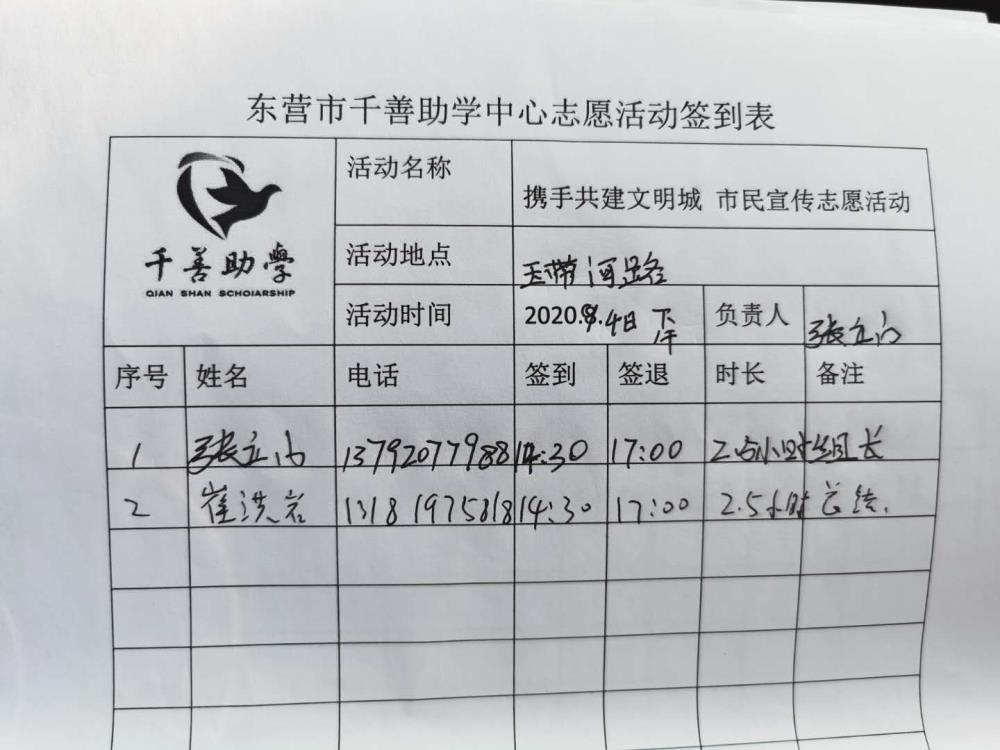 东营市千善助学中心志愿活动签到表
千善助学
QIAN SHAN SCHOIARSHIP
活动名称 携手共建文明城 市民宣传志愿活动
活动地点 玉带河路
活动时间 2020.8.4日 下午 负责人 张立
序号 姓名 电话 签到 签退 时长 备注
1 张立 13792077988 14:30 17:00 2.5小时 组长
2 崔洪岩 13181975818 14:30 17:00 2.5小时